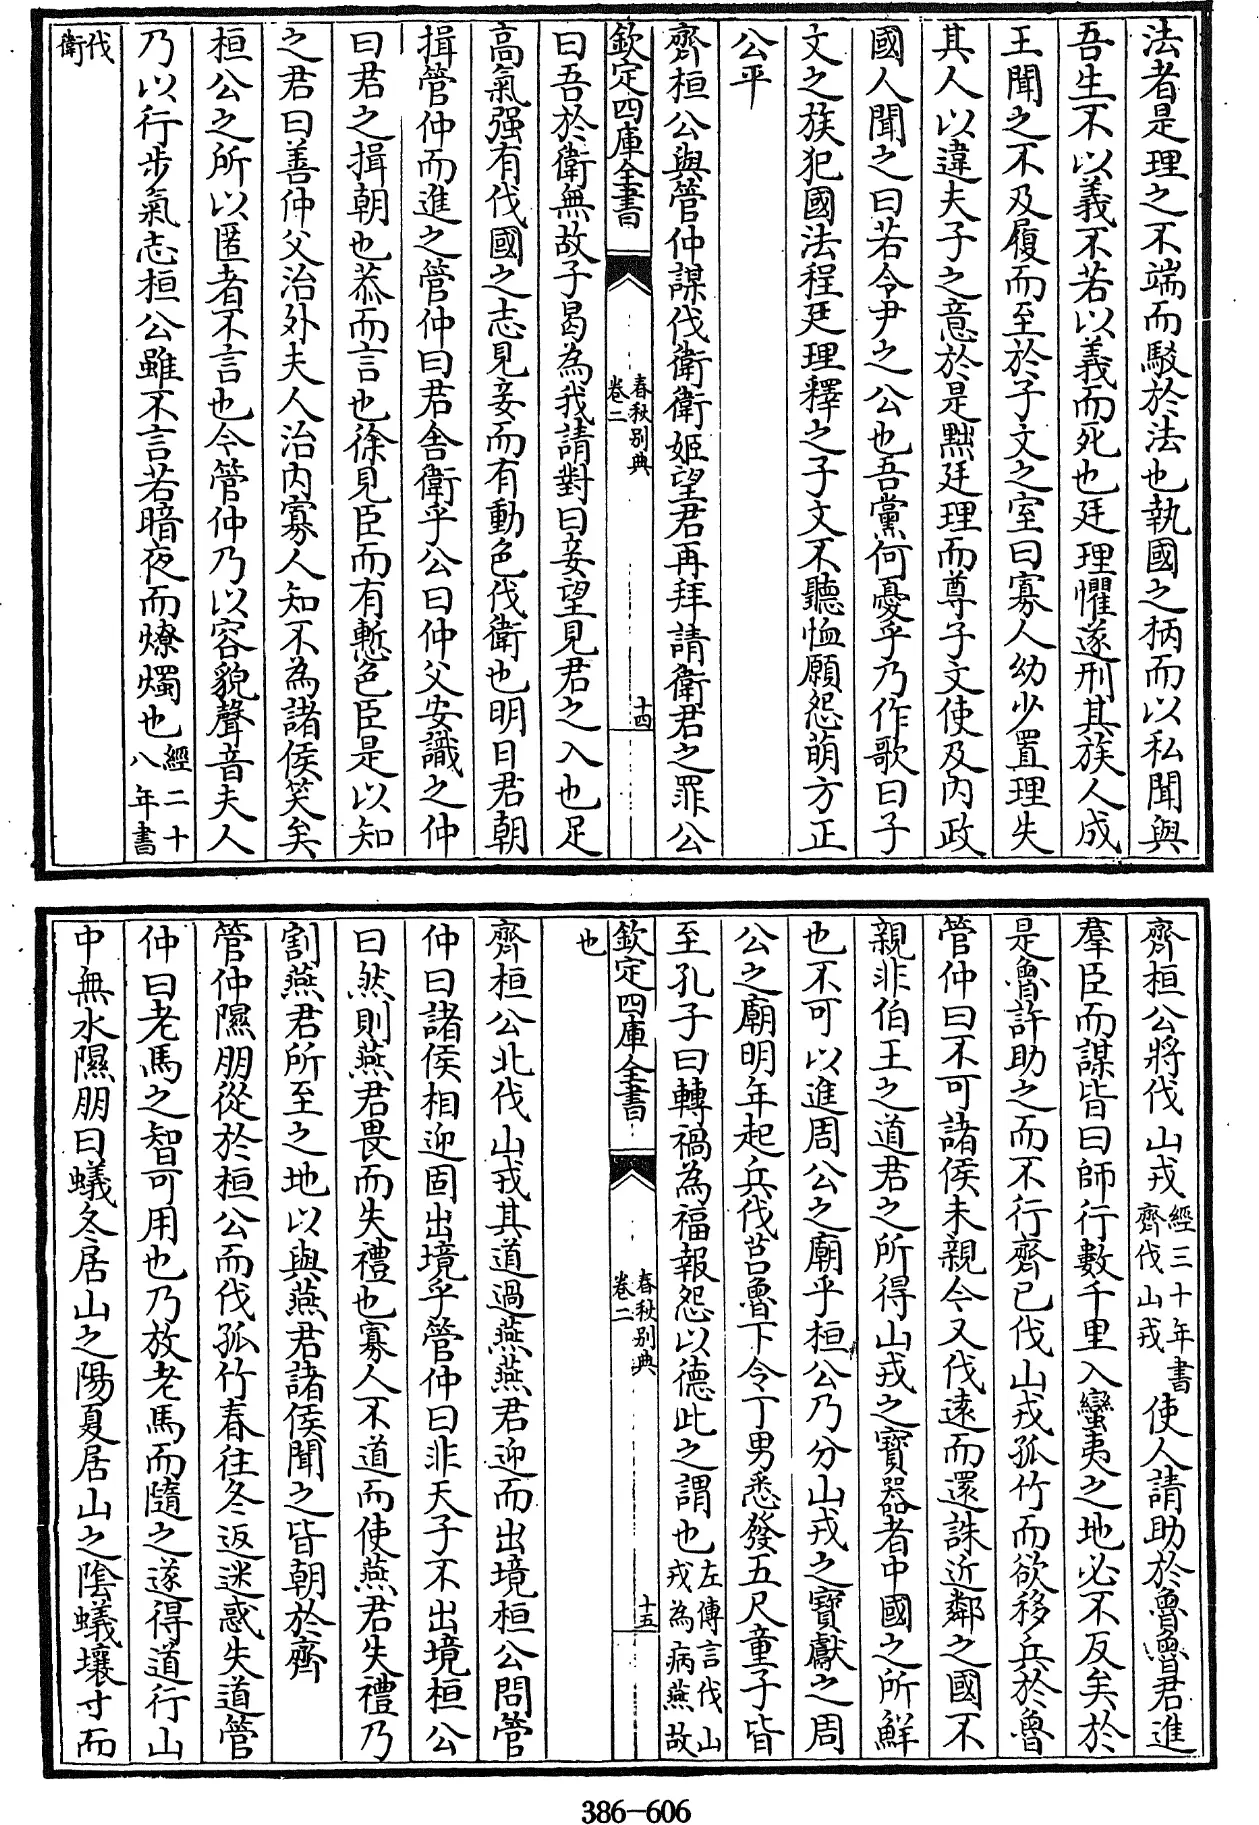 法者是理之不端而駁於法也執國之柄而以私聞與
吾生不以義不若以義而死也廷理懼遂刑其族人成
王聞之不及履而至於子文之室曰寡人幼少置理失
其人以違夫子之意於是黜廷理而尊子文使及内政
國人聞之曰若令尹之公也吾黨何憂乎乃作歌曰子
文之族犯國法程廷理釋之子文不聽恤願怨萌方正
公平
齊桓公與管仲謀伐衛衛姬望君再拜請衛君之罪公
欽定四庫全書
春秋别典
卷二
十四
曰吾於衛無故子曷為我請對曰妾望見君之入也足
高氣强有伐國之志見妾而有動色伐衛也明日君朝
揖管仲而進之管仲曰君舍衛乎公曰仲父安識之仲
曰君之揖朝也恭而言也徐見臣而有慙色臣是以知
之君曰善仲父治外夫人治内寡人知不為諸侯笑矣
桓公之所以匿者不言也今管仲乃以容貌聲音夫人
乃以行步氣志桓公雖不言若暗夜而燎燭也經二十
八年書
伐
衛
齊桓公將伐山戎經三十年書
齊伐山戎使人請助於魯魯君進
羣臣而謀皆曰師行數千里入蠻夷之地必不反矣於
是魯許助之而不行齊已伐山戎孤竹而欲移兵於魯
管仲曰不可諸侯未親今又伐遠而還誅近鄰之國不
親非伯王之道君之所得山戎之寶器者中國之所鮮
也不可以進周公之廟乎桓公乃分山戎之寶獻之周
公之廟明年起兵伐莒魯下令丁男悉發五尺童子皆
至孔子曰轉禍為福報怨以德此之謂也左傳言伐山
戎為病燕故
欽定四庫全書
春秋别典
卷二
十五
也
齊桓公北伐山戎其道過燕燕君迎而出境桓公問管
仲曰諸侯相迎固出境乎管仲曰非天子不出境桓公
曰然則燕君畏而失禮也寡人不道而使燕君失禮乃
割燕君所至之地以與燕君諸侯聞之皆朝於齊
管仲隰朋從於桓公而伐孤竹春往冬返迷惑失道管
仲曰老馬之智可用也乃放老馬而隨之遂得道行山
中無水隰朋曰蟻冬居山之陽夏居山之陰蟻壤寸而
386—606